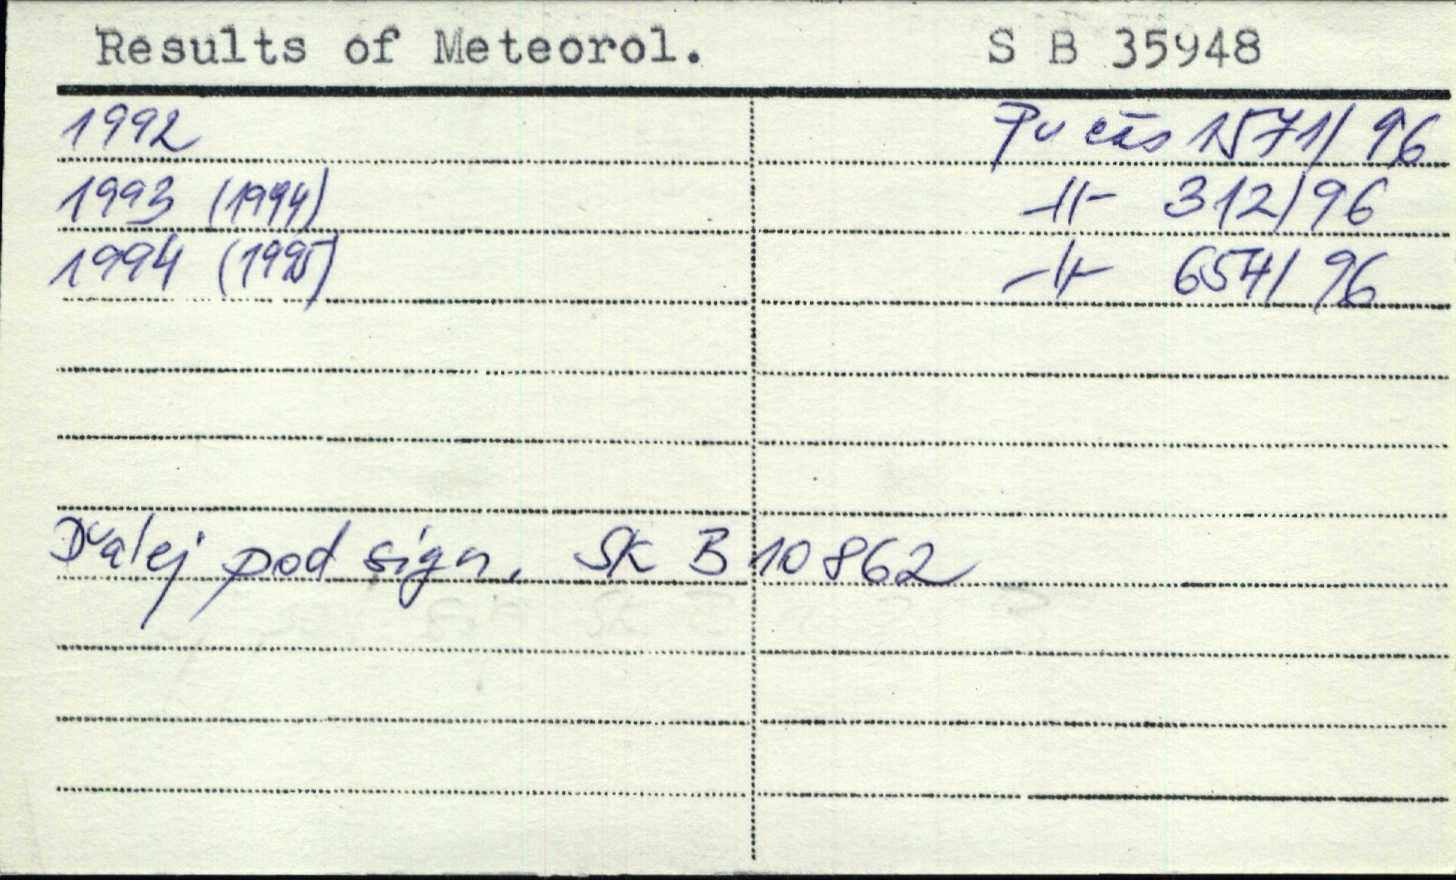 Results of Meteorol. S B 35948
1992 Pv čás 1571/96
1993 (1994) -||- 312/96
1994 (1995) -||- 657/96
Ďalej pod sign. SK B 10862